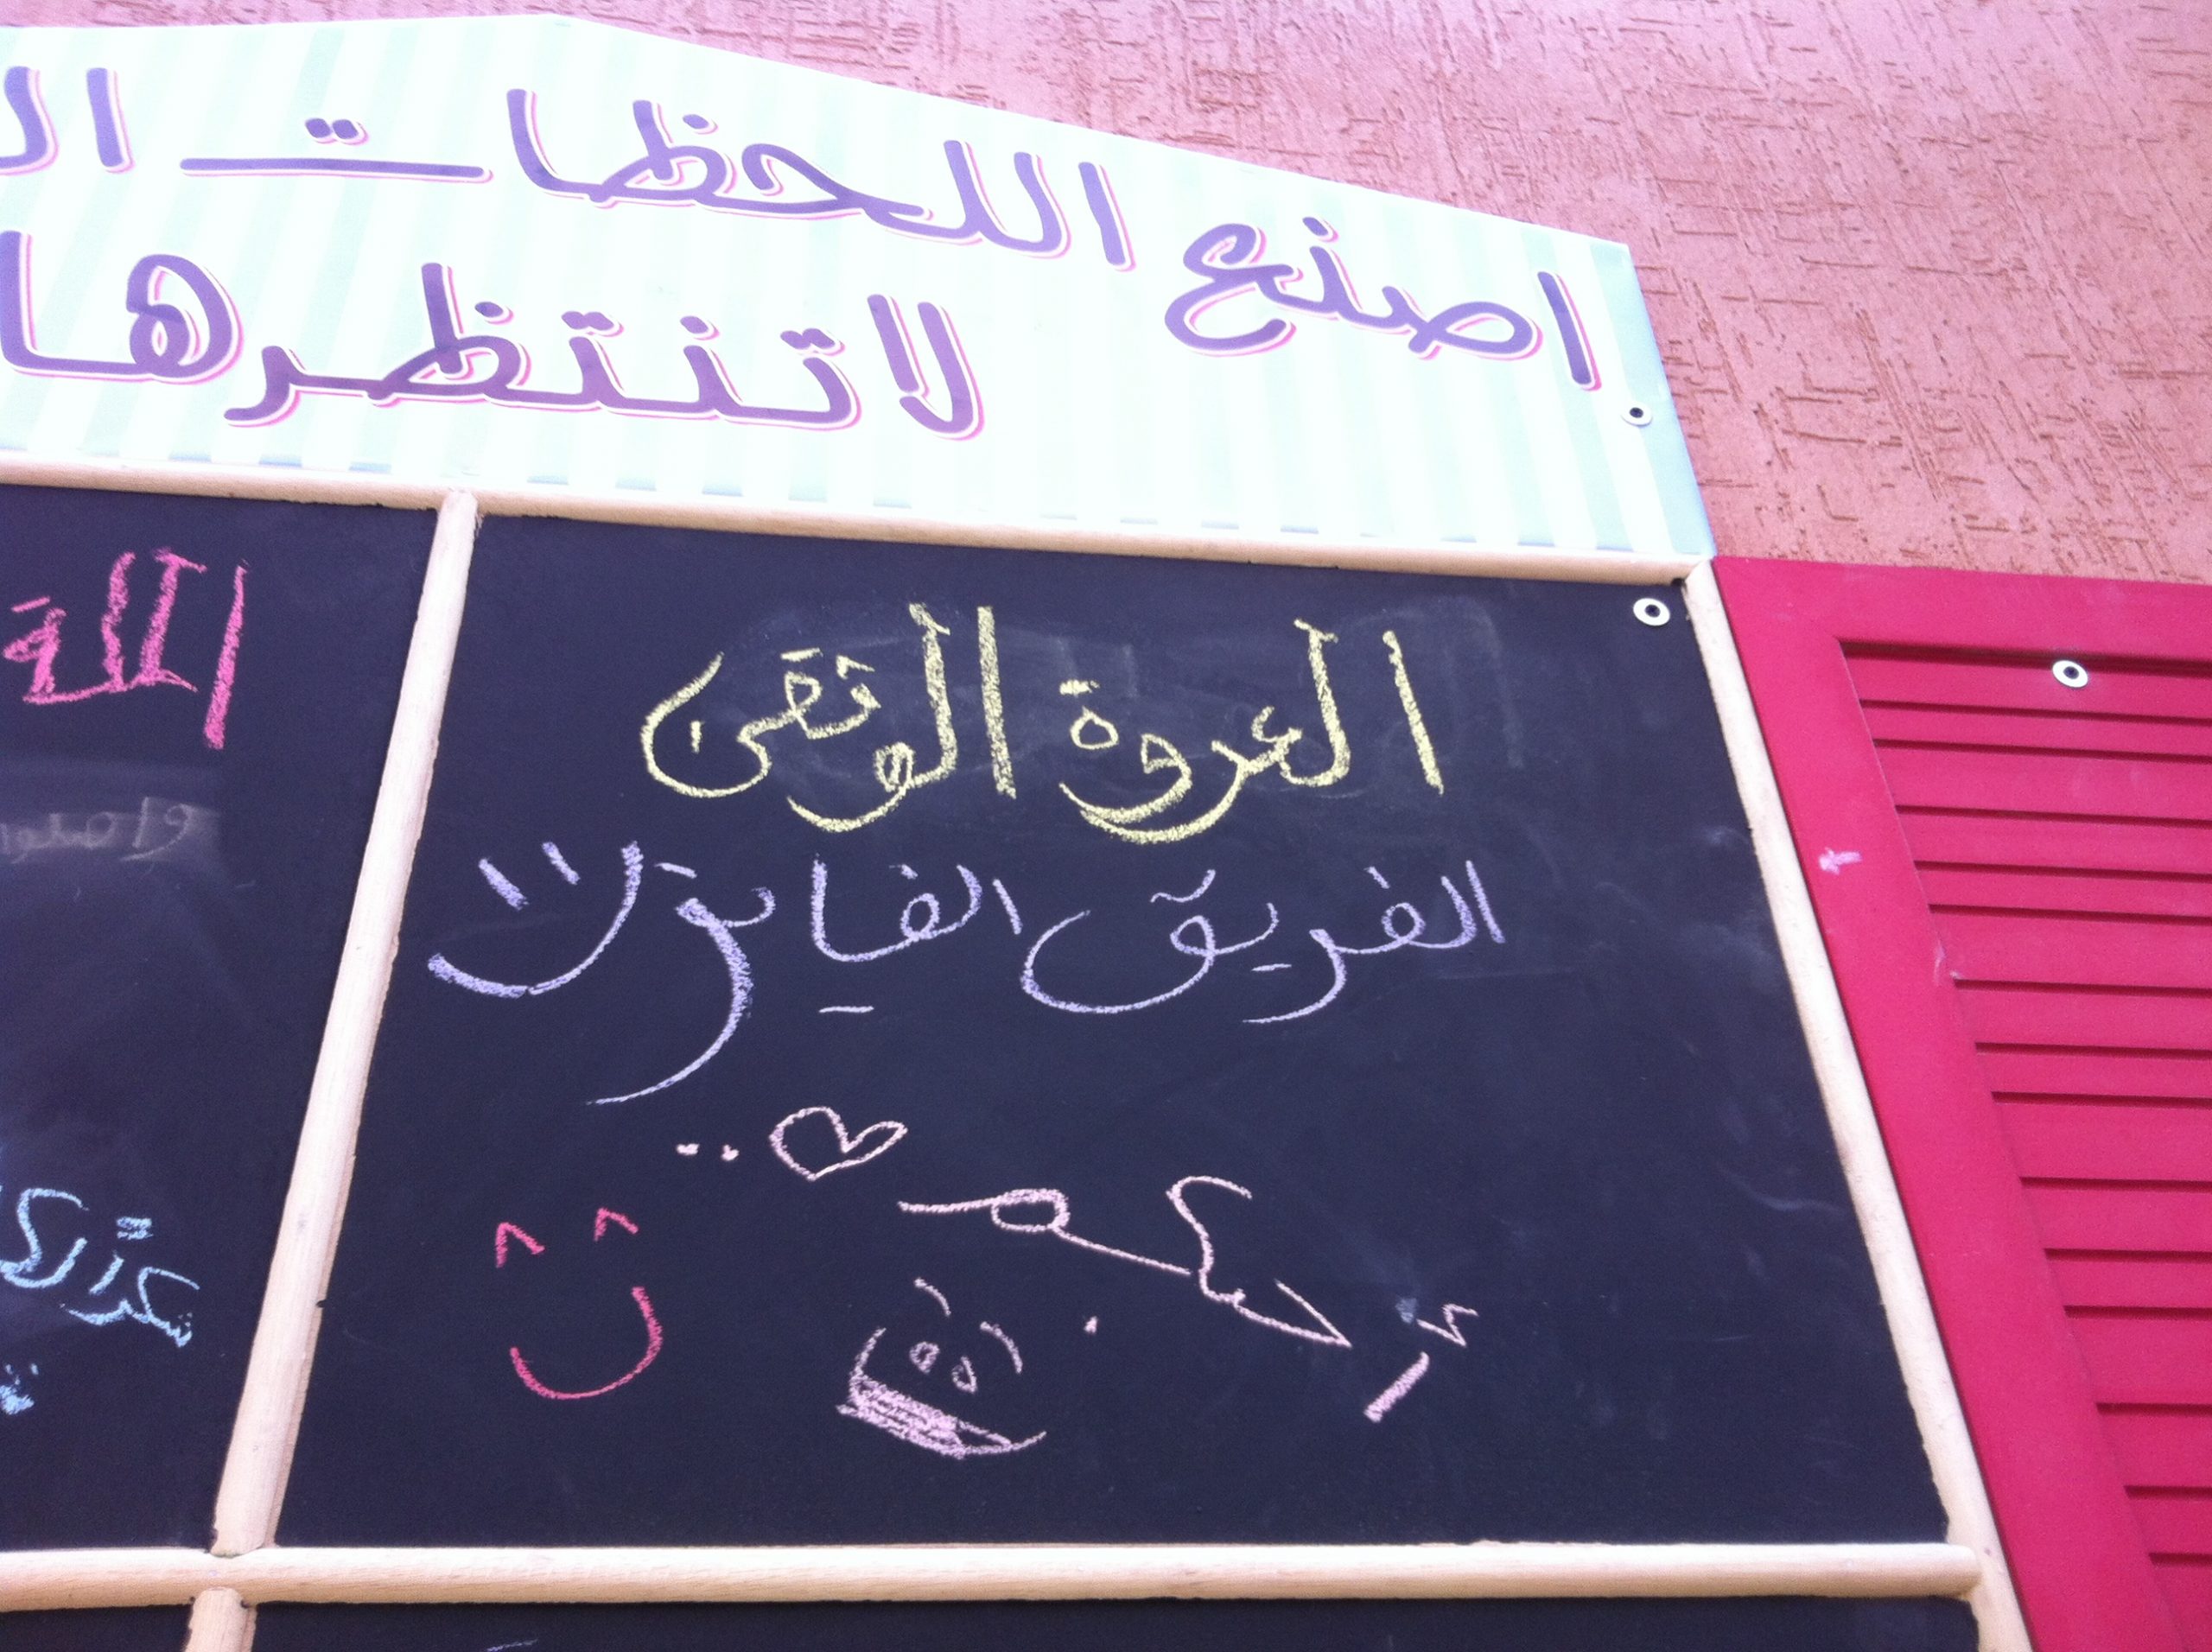 اصنع اللحظات
لا تنتظرها
العروة الوثقى
الفريق الفايز
شكراً